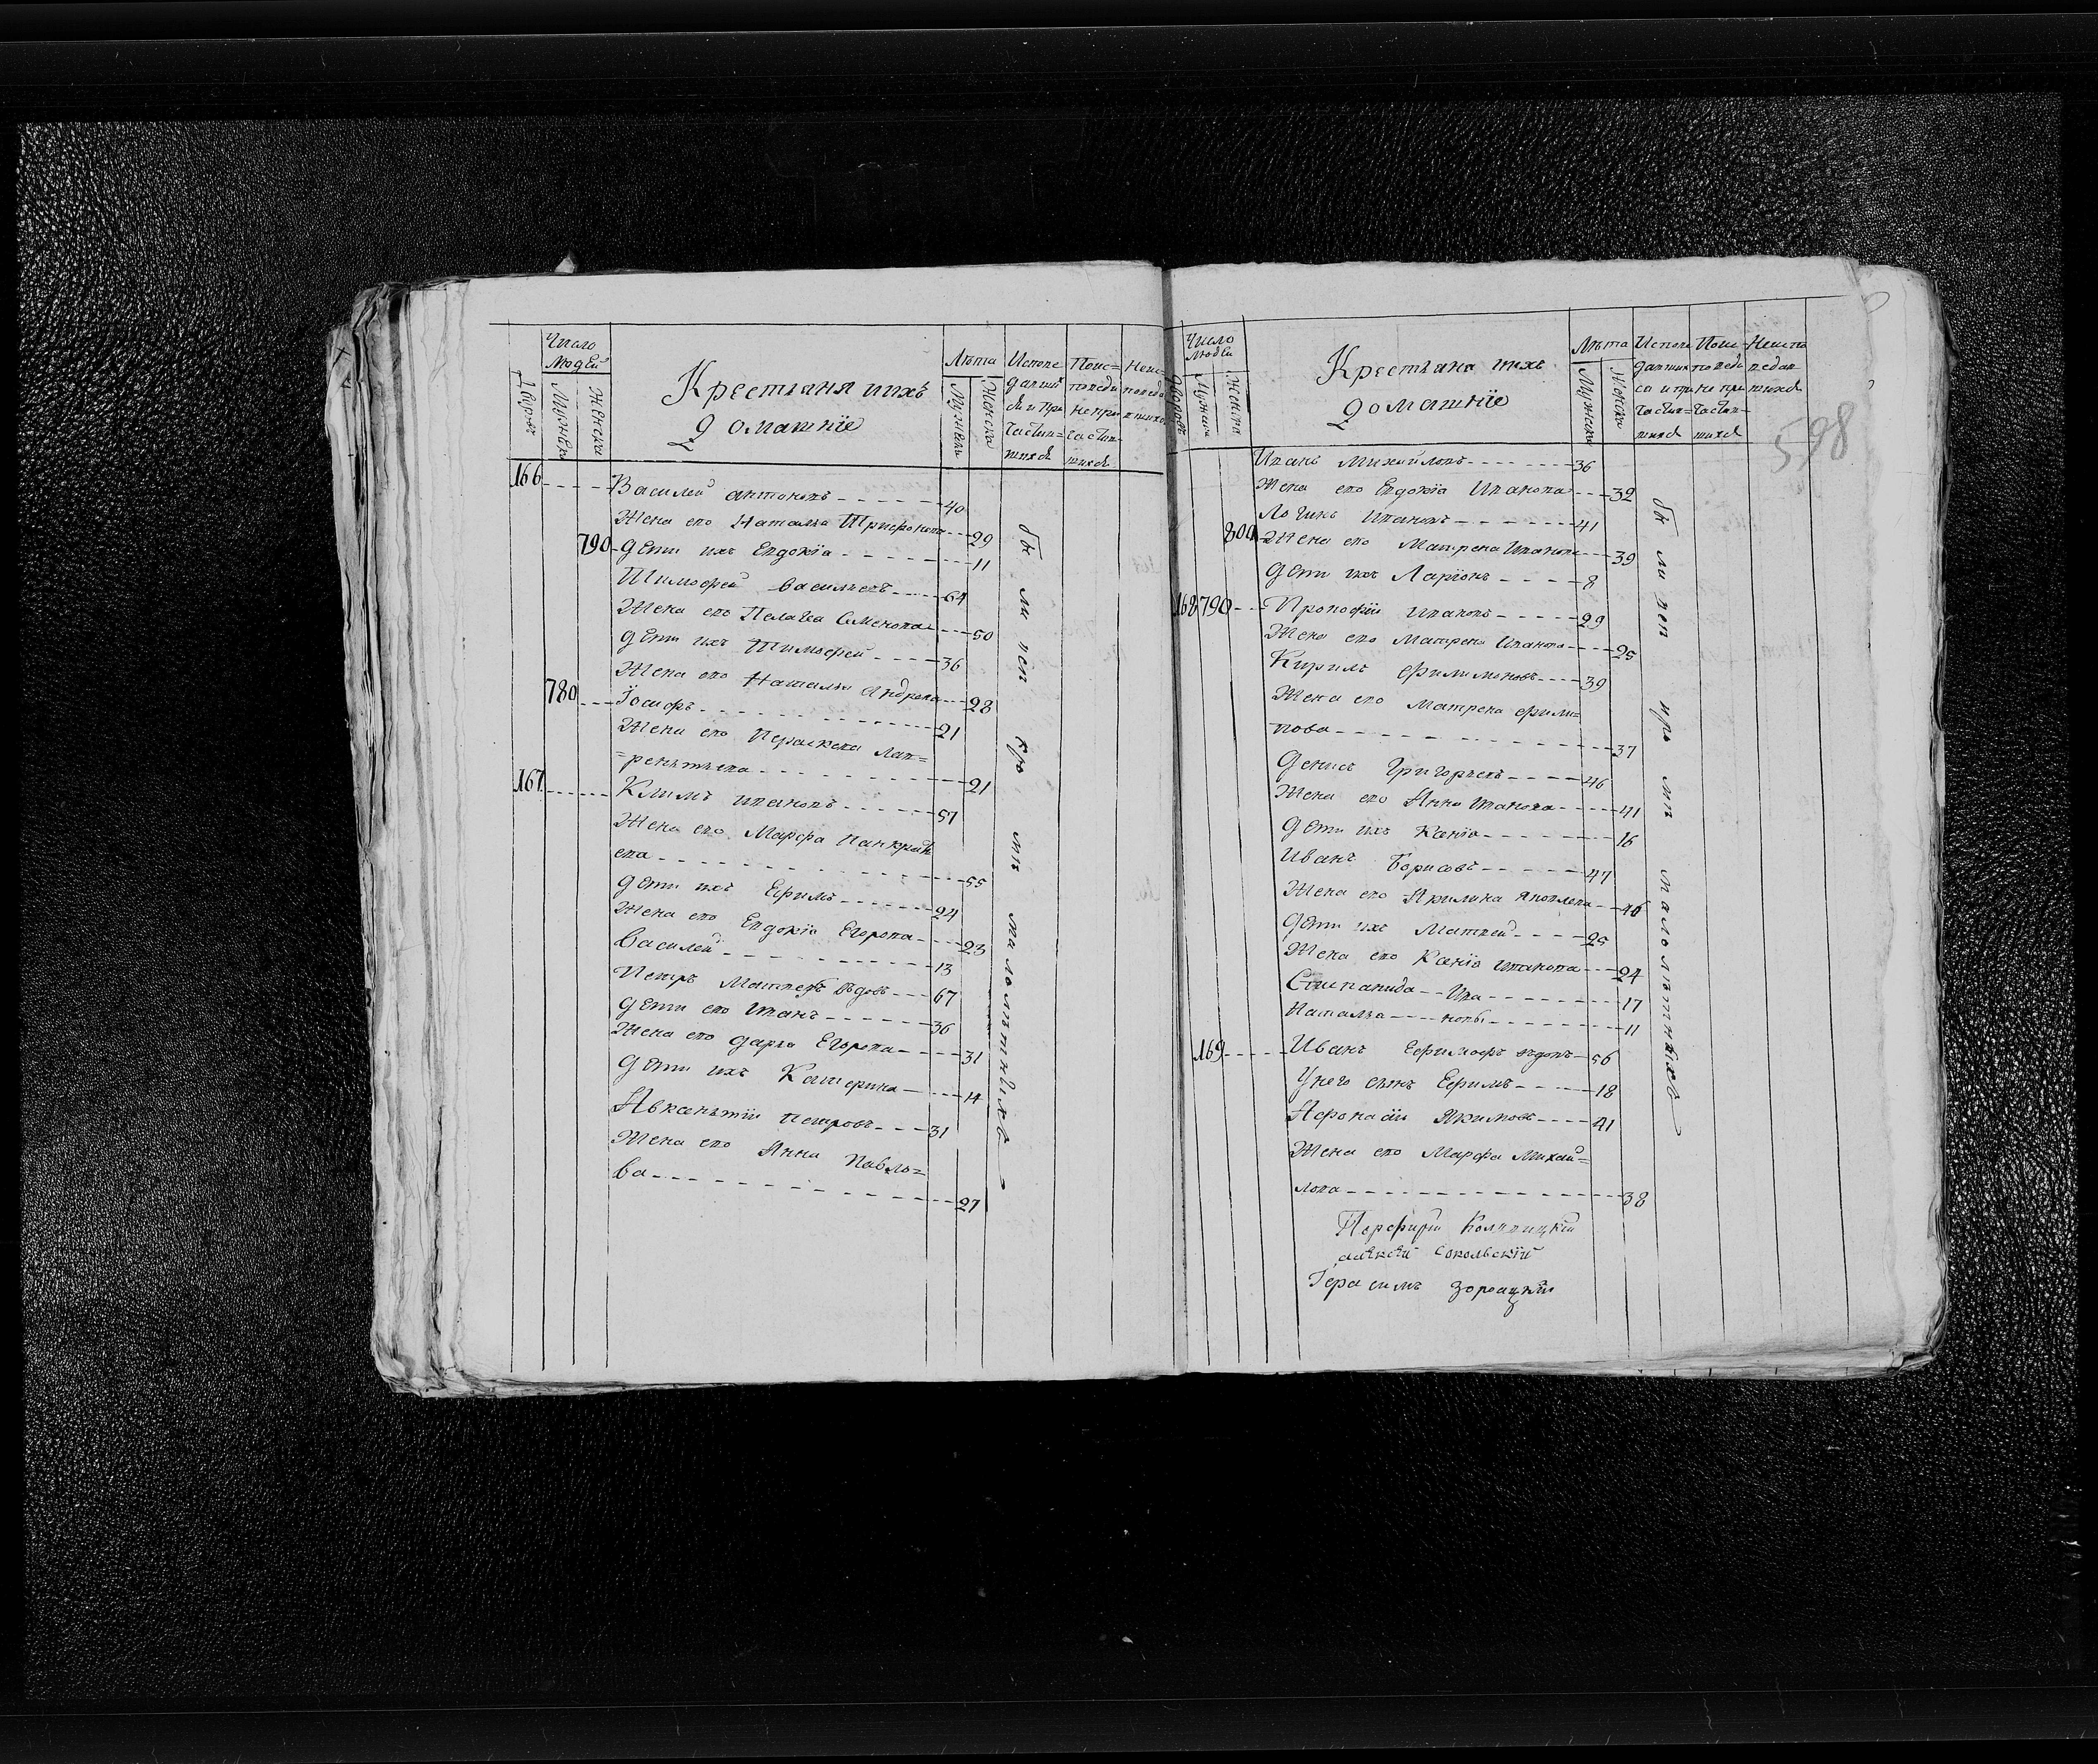 Число
людей
Дворовъ
Мужеска
Женска
Крестьяня ихъ
Домашніе
Лѣта
Мужеска
Женска
Испове
давши
ся и при
частив=
шихся
Поис=
поведа
не при
частив=
шихся
Неис=
поведа
вшихся
166 Василей Антоновъ 40
Жена его Наталья Трифонова 29
790 Дети ихъ Евдокіа 11
Тимофей Васильевъ 64
Жена его Пелагеа Семенова 50
Дети ихъ Тимофей 36
Жена его Наталья Андреева 28
780 Іосифъ 21
Жена его Пераскева Лав=
=рентьева 21
167 Климъ Ивановъ 57
Жена его Марфа Панкрать
ева 55
Дети ихъ Ефимъ 24
Жена его Евдокіа Егорова 23
Василей 13
Петръ Матвеевъ вдовъ 67
Дети его Иванъ 36
Жена его Дарья Егорова 31
Дети ихъ Катерина 14
Авксентіи Петровъ 31
Жена его Анна Павло=
ва 27
бы ли вси кро мѣ малолѣтныхъ
Число
людей
Дворовъ
Мужеска
Женска
Крестьяна ихъ
Домашніе
Лѣта
Мужеска
Женска
Испове
давших
са и при
частив=
шихся
Поис
поведа
не при
частив=
шихся
Неиспо
ведав
шихся
598
Иванъ Михайловъ 36
Жена его Евдокіа Иванова 32
Логинъ Ивановъ 41
800 Жена его Матрена Иванова 39
Дети ихъ Ларіонъ 8
168 790 Прокофіи Ивановъ 29
Жена его Матрена Иванова 25
Кирилъ Филимоновъ 39
Жена его Матрена Фили=
пова 37
Денисъ Григорьевъ 46
Жена его Анна Иванова 41
Дети ихъ Ксеніа 16
Иванъ Борисовъ 47
Жена его Акилина Яковлева 46
Дети ихъ Матвей 25
Жена его Ксеніа Иванова 24
Степанида Ива 17
Наталья новы 11
169 Иванъ Ефимовъ вдовъ 56
У него сынъ Ефимъ 18
Афонасіи Якимовъ 41
Жена его Марфа Михай=
лова 38
бы ли вси кро мѣ малолѣтныхъ
Порфирій
Алексѣй Сокольскій
Герасимъ